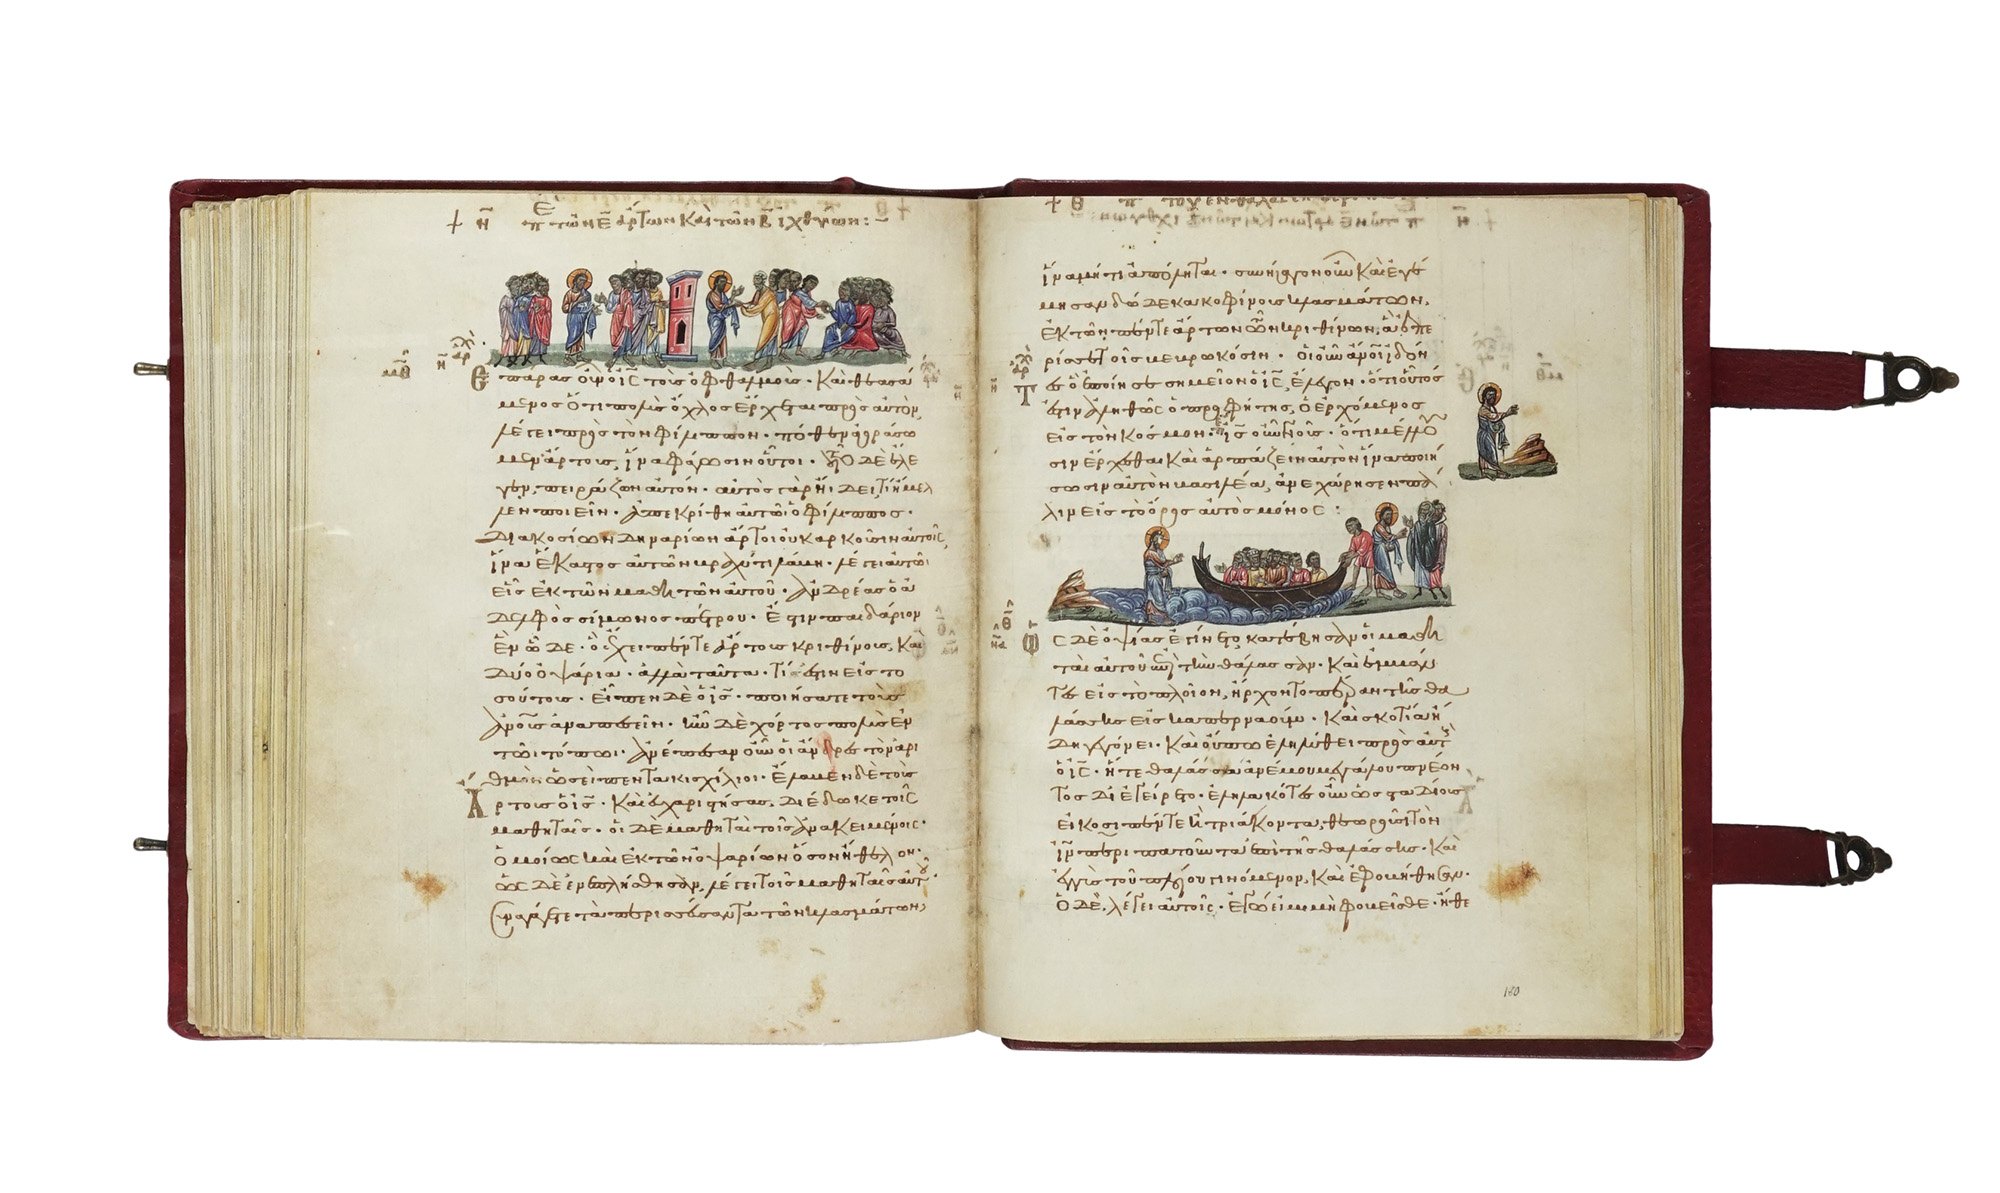 + η̅ π τῶν ε̅ ἄρτων καὶ τῶν β̅ ἰχθύων :~
Ἐπάρας οὖν ὁ ι̅ς̅ τοὺς ὀφθαλμοὺς· καὶ θεασά
μενος ὅτι πολὺς ὄχλος ἔρχεται πρὸς αὐτὸν,
λέγει πρὸς τὸν φίλιππον· πόθεν ἀγοράσω
μεν ἄρτους, ἵνα φάγωσιν οὗτοι· τοῦτο δὲ ἔλε
γεν, πειράζων αὐτόν· αὐτὸς γὰρ ἤιδει, τί ἤμελ
λεν ποιεῖν· ἀπεκρίθη αὐτῶι ὁ φίλιππος·
διακοσίων δηναρίων ἄρτοι οὐκ ἀρκοῦσιν αὐτοῖς,
ἵνα ἕκαστος αὐτῶν βραχύ τι λάβη· λέγει αὐτῶι
εἷς ἐκ τῶν μαθητῶν αὐτοῦ· ἀνδρέας ὁ ἀ
δελφὸς σίμωνος πέτρου· ἔστιν παιδάριον
ἓν ὧδε· ὃ ἔχει πέντε ἄρτους κριθίνους, καὶ
δύο ὀψάρια· ἀλλὰ ταῦτα τί ἐστιν εἰς το
σούτους· εἶπεν δὲ ὁ ι̅ς̅· ποιήσατε τοὺς
ἀν̅ο̅υ̅ς̅ ἀναπεσεῖν· ἦν δὲ χόρτος πολὺς ἐν
τῶι τόπωι· ἀνέπεσαν οὖν οἱ ἄνδρες τὸν ἀρι
θμὸν ὡσεὶ πεντακισχίλιοι· ἔλαβεν δὲ τοὺς
ἄρτους ὁ ι̅ς̅· καὶ εὐχαριστήσας, διέδωκε τοῖς
μαθηταῖς· οἱ δὲ μαθηταὶ τοῖς ἀνακειμένοις·
ὁμοίως καὶ ἐκ τῶν ὀψαρίων ὅσον ἤθελον·
ὡς δὲ ἐνεπλήσθησαν, λέγει τοῖς μαθηταῖς αὐτοῦ·
Συναγάγετε τὰ περισσεύσαντα τῶν κλασμάτων,
ἵνα μή τι ἀπόληται· συνήγαγον οὖν καὶ ἐγέ
μησαν δώδεκα κοφίνους κλασμάτων,
ἐκ τῶν πέντε ἄρτων τῶν κριθίνων, ἃ ἐπε
ρίσσευσε τοῖς βεβρωκόσιν· οἱ οὖν ἀν̅ο̅ι̅ ἰδόν
τες ὃ ἐποίησε σημεῖον ὁ ι̅ς̅, ἔλεγον· ὅτι οὗτός
ἐστιν ἀληθῶς ὁ προφήτης, ὁ ἐρχόμενος
εἰς τὸν κόσμον· ι̅ς̅ οὖν γνοὺς· ὅτι μέλλου
σιν ἔρχεσθαι καὶ ἁρπάζειν αὐτὸν ἵνα ποιή
σωσιν αὐτὸν βασιλέα, ἀνεχώρησεν πά
λιν εἰς τὸ ὄρος αὐτὸς μόνος :
Ὡς δὲ ὀψία ἐγένετο, κατέβησαν οἱ μαθη
ταὶ αὐτοῦ ἐπὶ τὴν θάλασσαν· καὶ ἐμβάν
τες εἰς τὸ πλοῖον, ἤρχοντο πέραν τῆς θα
λάσσης εἰς καπερναούμ· καὶ σκοτία ἤ
δη γεγόνει· καὶ οὔπω ἐληλύθει πρὸς αὐτοὺς
ὁ ι̅ς̅· ἥ τε θάλασσα ἀνέμου μεγάλου πνέον
τος διεγείρετο· ἐληλακότες οὖν ὡς σταδίους
εἰκοσιπέντε ἢ τριάκοντα, θεωροῦσι τὸν
ι̅ν̅ περιπατοῦντα ἐπὶ τῆς θαλάσσης· καὶ
ἐγγὺς τοῦ πλοίου γινόμενον, καὶ ἐφοβήθησαν·
ὁ δὲ, λέγει αὐτοῖς· ἐγώ εἰμι μὴ φοβεῖσθε· ἤθε
180